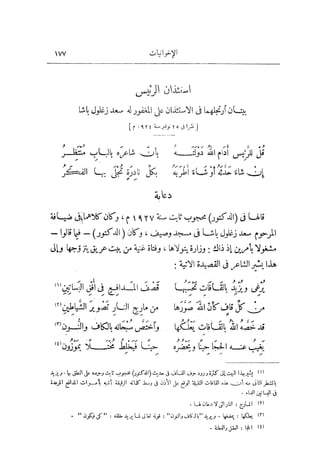 الإخوانيات ١٧٧
استئذان الرئيس
بيتان ارتجلهما فى الاستئذان على المغفور له سعد زغلول باشا
[ نشرا فى ٢٥ نوفمبر سنة ١٩٢٤ م ]
قل للرئيس أدام الله دولته بأن شاعره بالباب منتظر
إن شاء حدثه أو شاء أطربه بكل نادرة تجلى بها الفكر
دعابة
قالها فى (الدكتور) محجوب ثابت سنة ١٩٢٧ م، وكان كلاهما فى ضيافة
المرحوم سعد زغلول باشا فى مسجد وصيف، وكان (الدكتور) — فيما قالوا —
مشغولا بأمرين إذ ذاك : وزارة يتولاها، وفتاة غنية من بيت عريق يتزوجها وإلى
هذا يشير الشاعر فى القصيدة الآتية :
يرغى ويزبد بالقافات تحسبها قصف المدافع فى أفق البساتين (١)
من كل قاف كأن الله صورها من مارج النار تصوير الشياطين (٢)
قد خصه الله بالقافات يعلكها واختص سبحانه بالكاف والنون (٣)
يغيب عنه الحجا حينا ويحضره حينا فيخلط مختلا بموزون (٤)
(١) يشير بهذا البيت إلى كثرة ورود حرف القاف فى حديث (الدكتور) محجوب ثابت وحرصه على النطق بها. ويريد
بالشطر الثانى منه أن هذه القافات الثقيلة الوقع على الآذان فى وسط كلماته الرقيقة أشبه بأصوات المدافع المزعجة
فى البساتين الغناء .
(٢) المارج : النار التى لا دخان لها .
(٣) يعلكها : يمضغها . ويريد "بالكاف والنون" : قوله تعالى لما يريد خلقه : "كن فيكون" .
(٤) الحجا : العقل والفطنة .